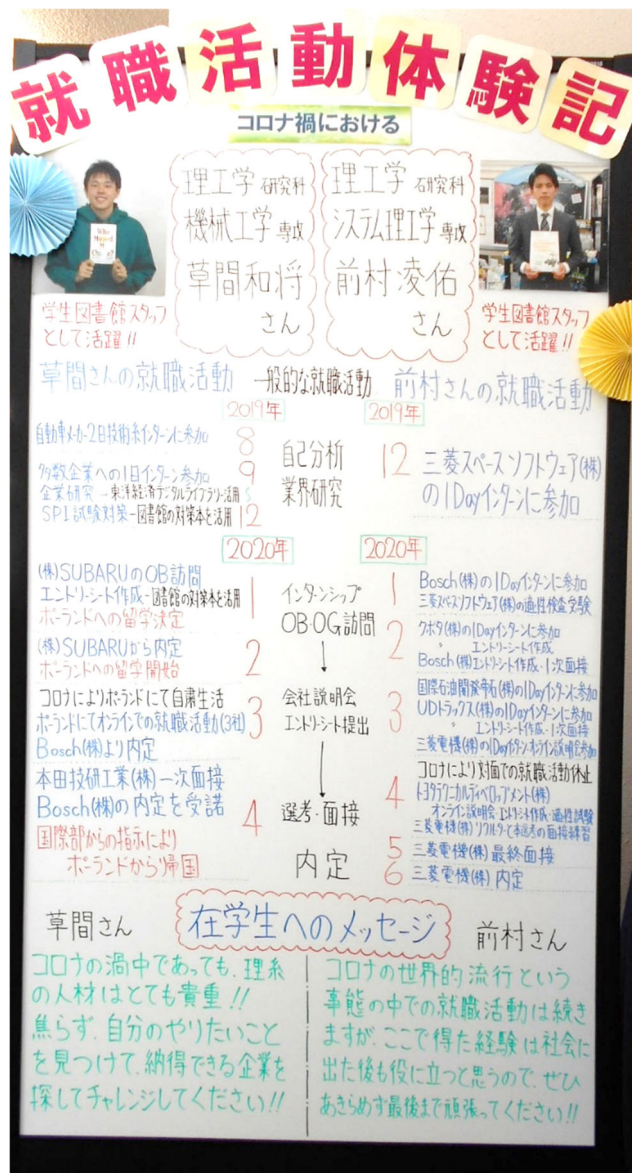 就職活動体験記
コロナ禍における
理工学 研究科
機械工学 専攻
草間和将
さん
理工学 研究科
システム理工学 専攻
前村凌佑
さん
学生図書館スタッフ
として活躍!!
学生図書館スタッフ
として活躍!!
草間さんの就職活動
一般的な就職活動
前村さんの就職活動
2019年
自動車メーカー2日技術系インターンに参加
8
多数企業への1日インターン参加
9
企業研究→東洋経済デジタルライブラリー活用
SPI試験対策→図書館の対策本を活用
12
2020年
(株)SUBARUのOB訪問
エントリーシート作成→図書館の対策本を活用
1
ポーランドへの留学決定
(株)SUBARUから内定
2
ポーランドへの留学開始
コロナによりポーランドにて自粛生活
ポーランドにてオンラインでの就職活動(3社)
3
Bosch(株)より内定
本田技研工業(株)一次面接
Bosch(株)の内定を受諾
4
国際部からの指示により
ポーランドから帰国
自己分析
業界研究
インターンシップ
OB・OG訪問
↓
会社説明会
エントリーシート提出
↓
選考・面接
内定
2019年
12
三菱スペースソフトウェア(株)
の1Dayインターンに参加
2020年
1
Bosch(株)の1Dayインターンに参加
三菱スペースソフトウェア(株)の適性検査受験
2
クボタ(株)の1Dayインターンに参加
〃 エントリーシート作成
Bosch(株)エントリーシート作成・1次面接
3
国際石油開発帝石(株)の1Dayインターンに参加
UDトラックス(株)の1Dayインターンに参加
〃 エントリーシート作成・1次面接
三菱電機(株)の1Dayインターン・オンライン説明会参加
コロナにより対面での就職活動休止
4
トヨタテクニカルディベロップメント(株)
オンライン説明会・エントリーシート作成・適性試験
三菱電機(株)リクルーターと本選考の面接練習
5
三菱電機(株)最終面接
6
三菱電機(株)内定
在学生へのメッセージ
草間さん
コロナの渦中であっても、理系
の人材はとても貴重!!
焦らず、自分のやりたいこと
を見つけて、納得できる企業を
探してチャレンジしてください!!
前村さん
コロナの世界的流行という
事態の中での就職活動は続き
ますが、ここで得た経験は社会に
出た後も役に立つと思うので、ぜひ
あきらめず最後まで頑張ってください!!